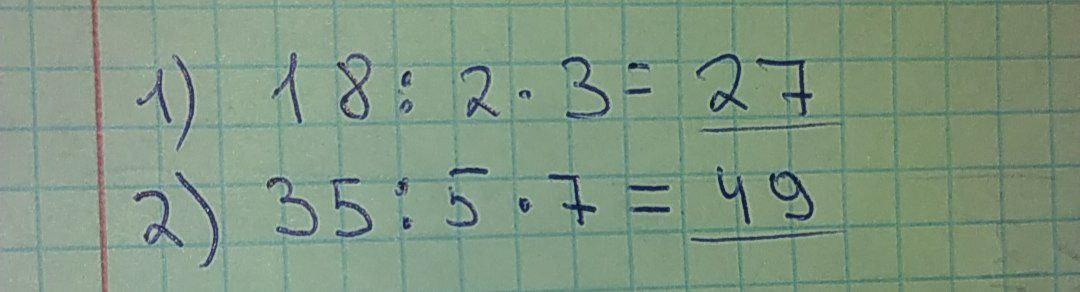 1) 18:2·3=27
2) 35:5·7=49